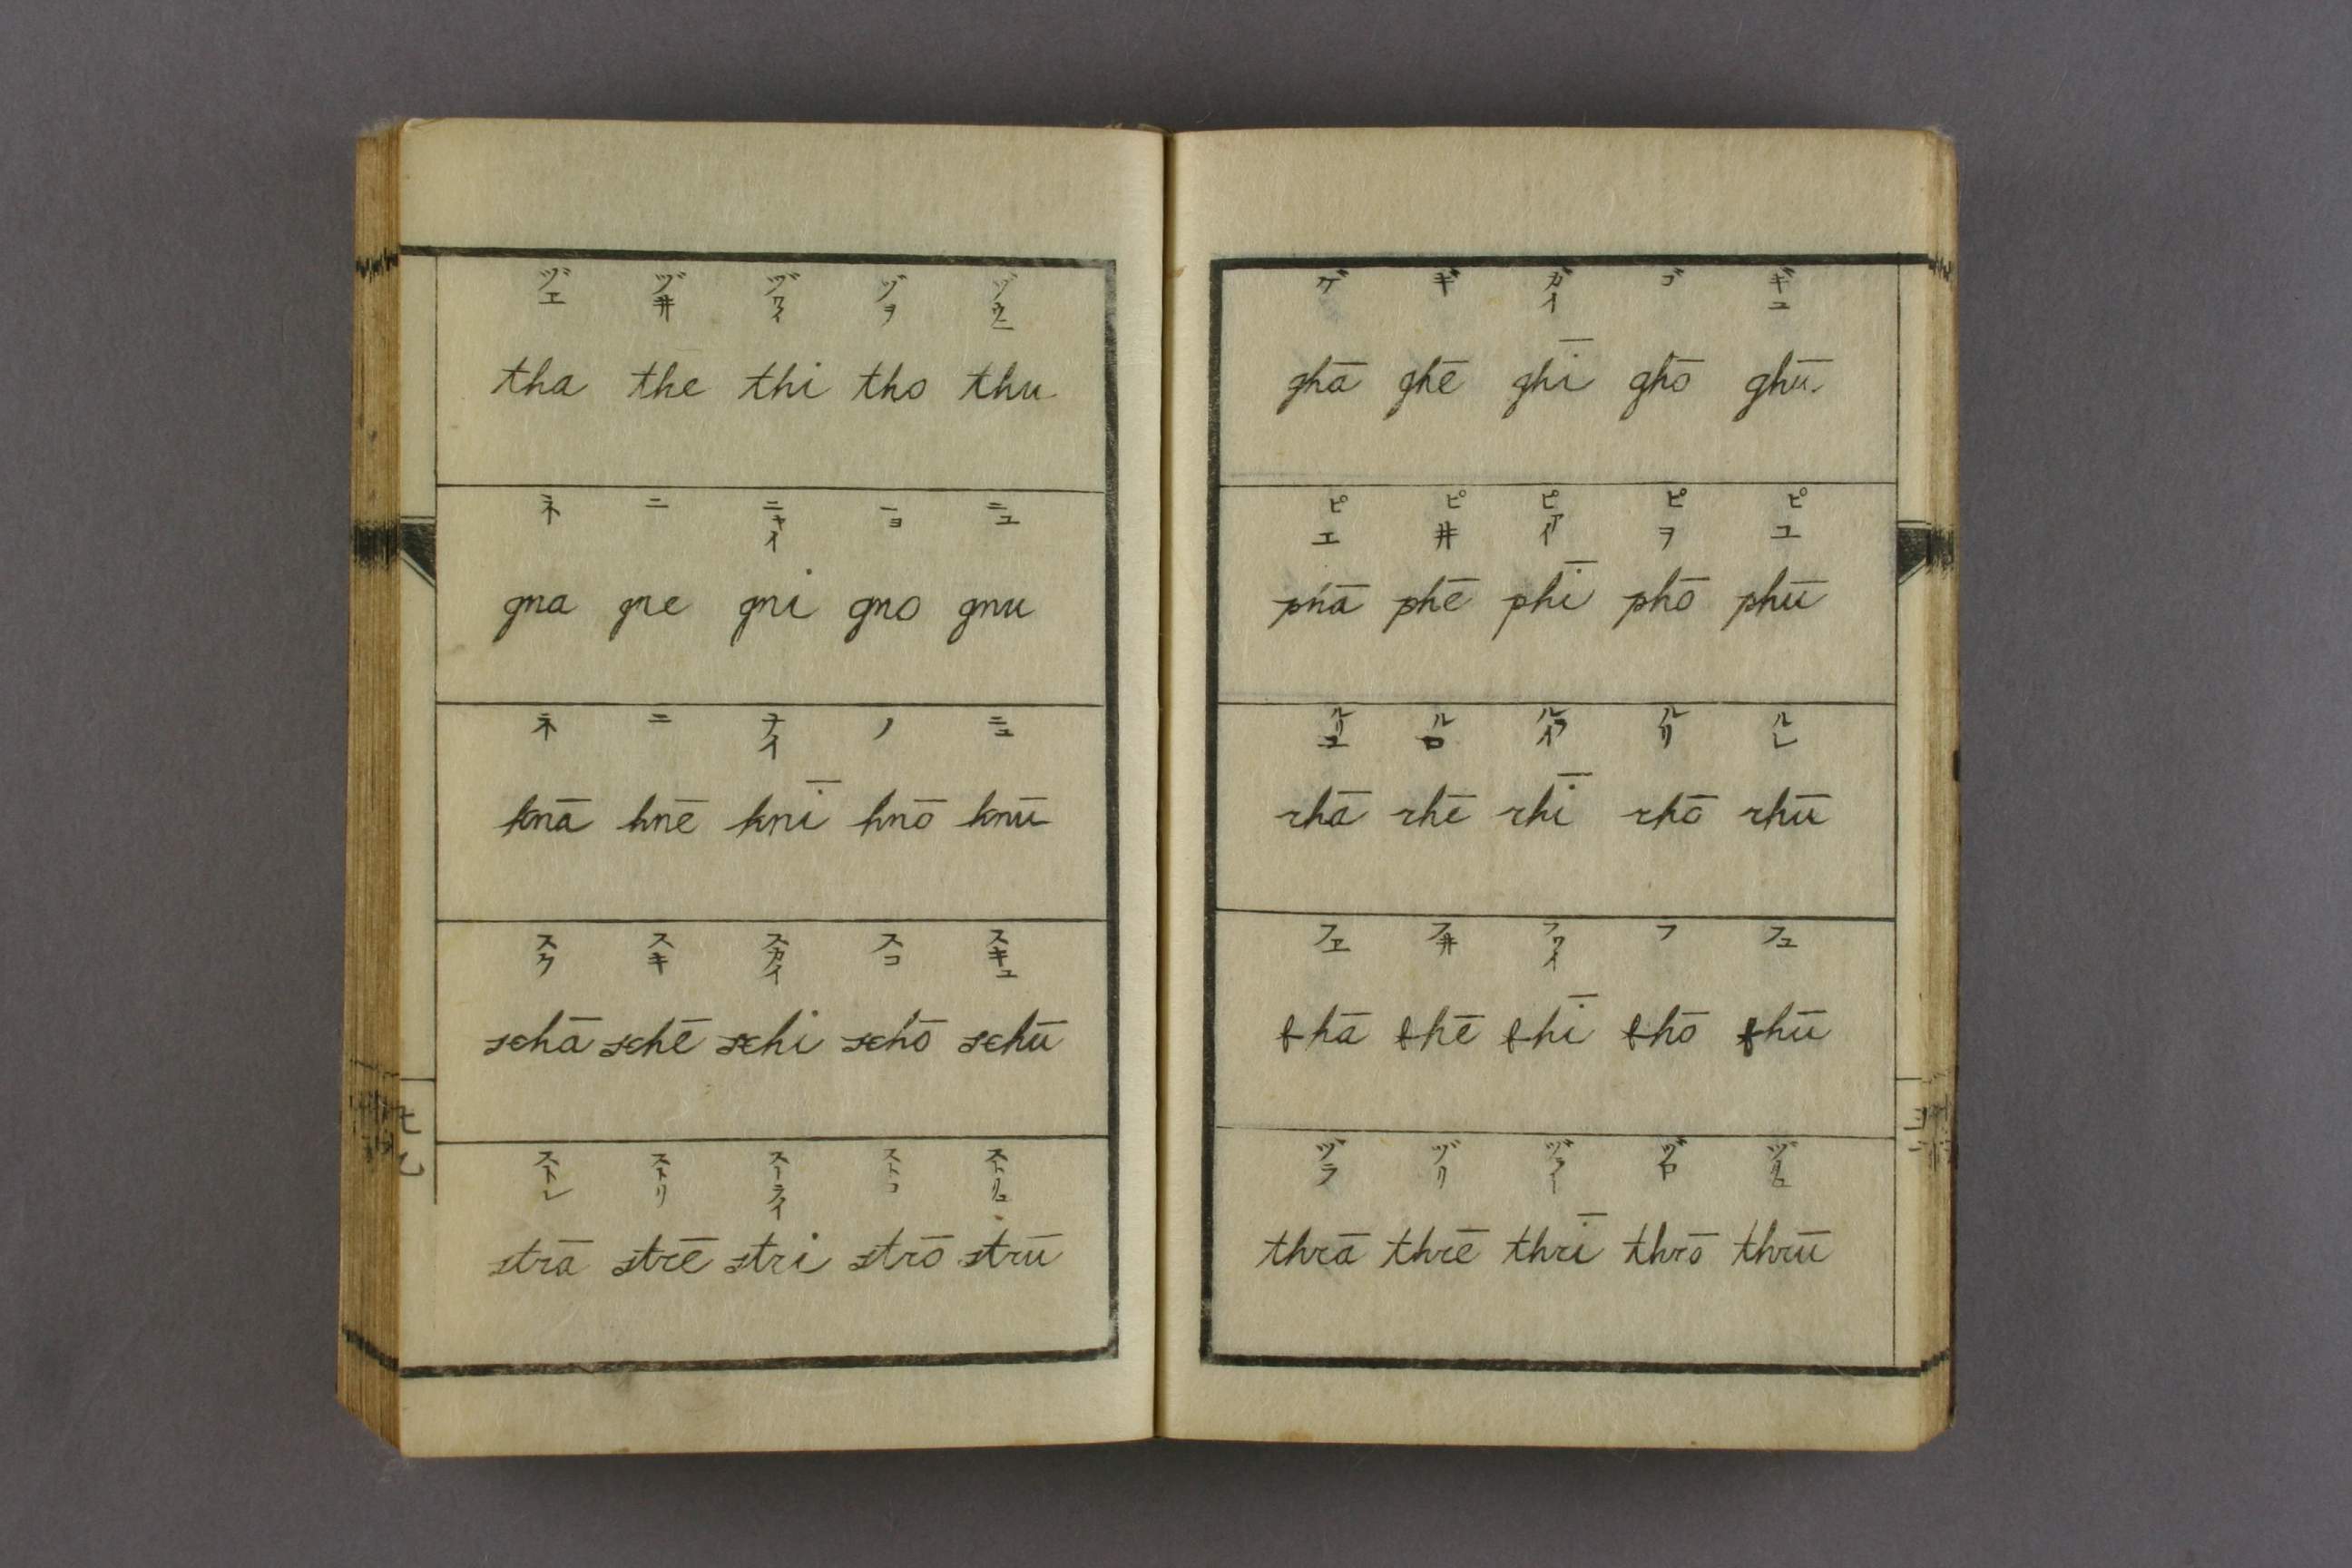 ヅエ ヅヰ ヅワイ ヅヲ
tha the thi tho thu
ネ ニ ニヤイ ニヨ ニユ
gna gne gni gno gnu
ネ ニ ナイ ノ ニユ
knā knē knī knō knū
スケ スキ スカイ スコ スキユ
schā schē schi schō schū
ストレ ストリ ストライ ストリユ
strā strē stri strō strū
ゲ ギ ガイ ゴ ギユ
ghā ghē ghī ghō ghū
ピエ ピヰ ピアイ ピヲ ピユ
phā phē phī phō phū
rhā rhē rhī rhō rhū
フエ フヰ フワイ フ フユ
fhā fhē fhī fhō fhū
ヅラ ヅリ ヅライ ヅロ
thrā thrē thrī thrō thrū